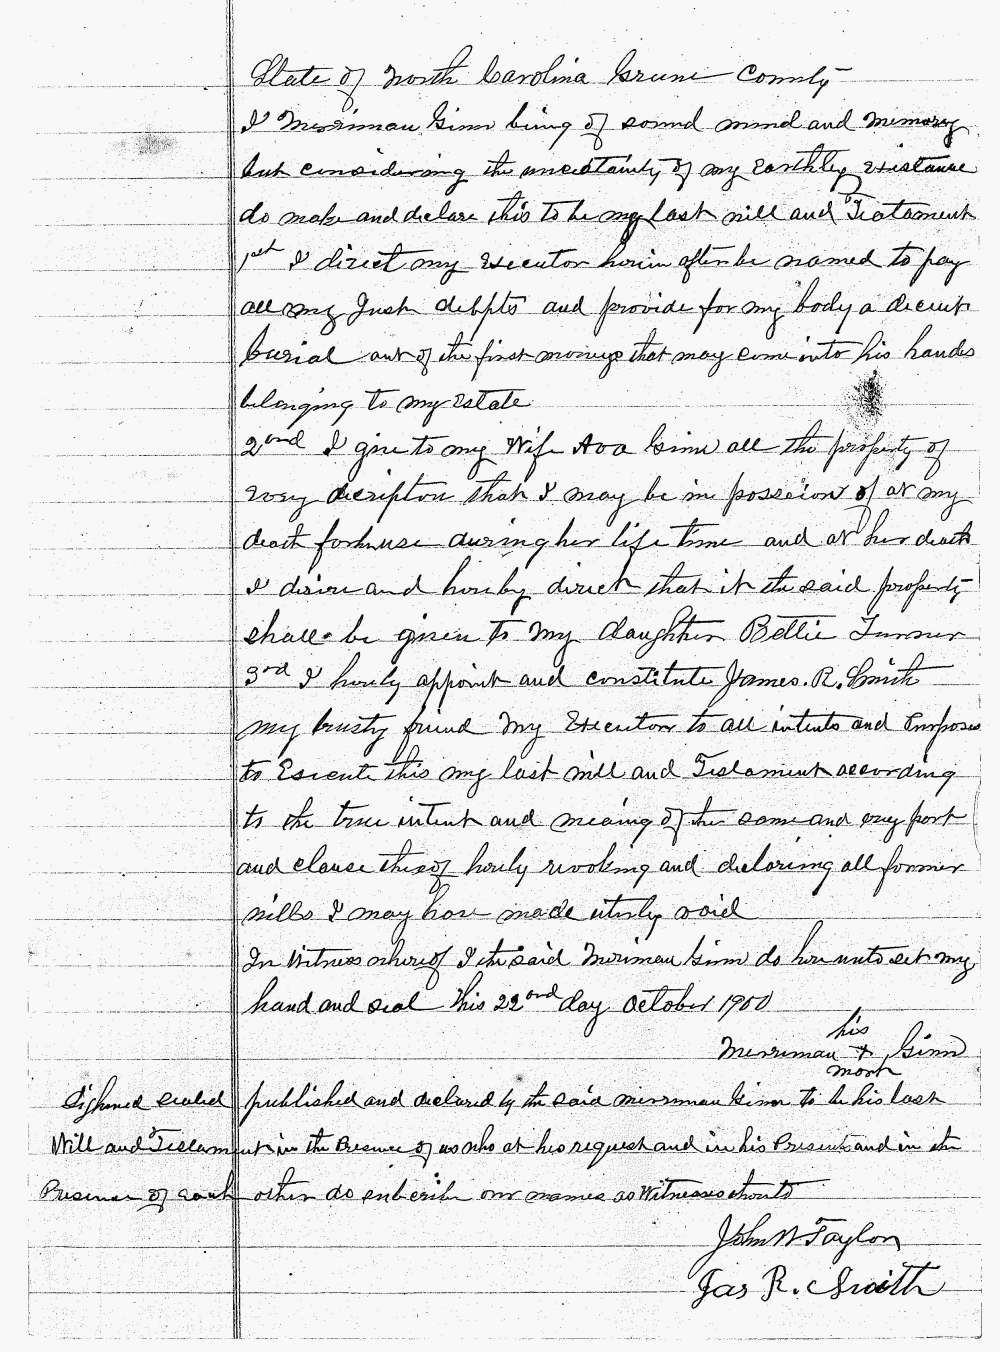 State of North Carolina Greene County
I Merriman Ginn being of sound mind and Memory
but considering the uncertainty of my Earthly Existance
do make and declare this to be my last will and Testament
1st I direct my Executor herein after be named to pay
all my Just debpts and provide for my body a decent
burial out of the first moneys that may come into his handes
belonging to my Estate
2ond I give to my Wife Ava Ginn all the property of
every decription that I may be in possesion of at my
death for her use during her life time and at her death
I desire and hereby direct that it the said property
shall be given to My daughter Bettie Turner
3rd I hereby appoint and constitute James. R. Smith
my trusty friend My Executor to all intents and Purposes
to Execute this my last will and Testament according
to the true intent and meaing of the same and evry part
and clause thereof hereby revoking and declaring all former
wills I may have made uterly void
In Witness whereof I the said Merriman Ginn do here unto set my
hand and seal this 22ond day October 1900
his
Merriman + Ginn
mark
Sighned sealed published and declared by the said Merriman Ginn to be his last
Will and Testament in the Presence of us who at his request and in his Presents and in the
Presence of each other do subcribe our names as Witnesses thereto
John W Taylor
Jas R. Smith